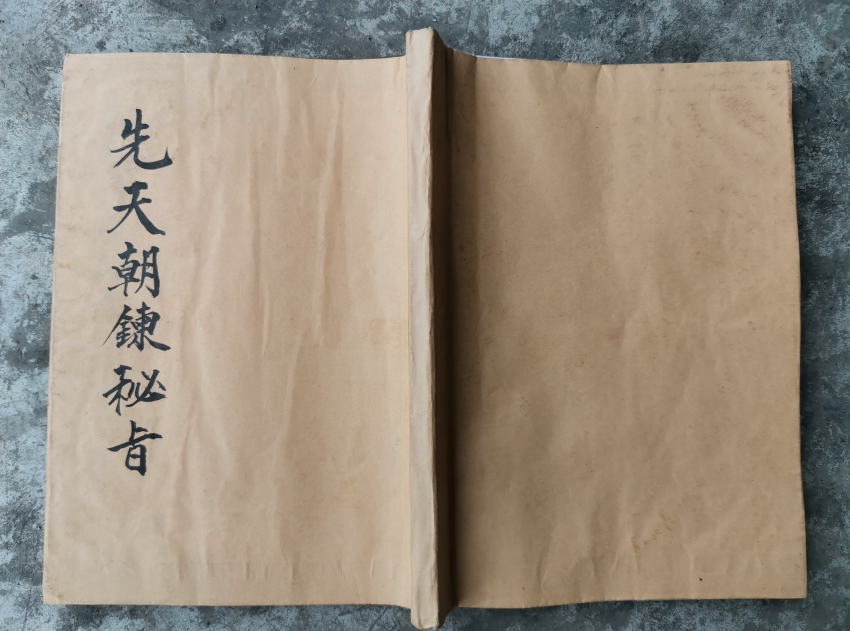 先天朝鍊秘旨